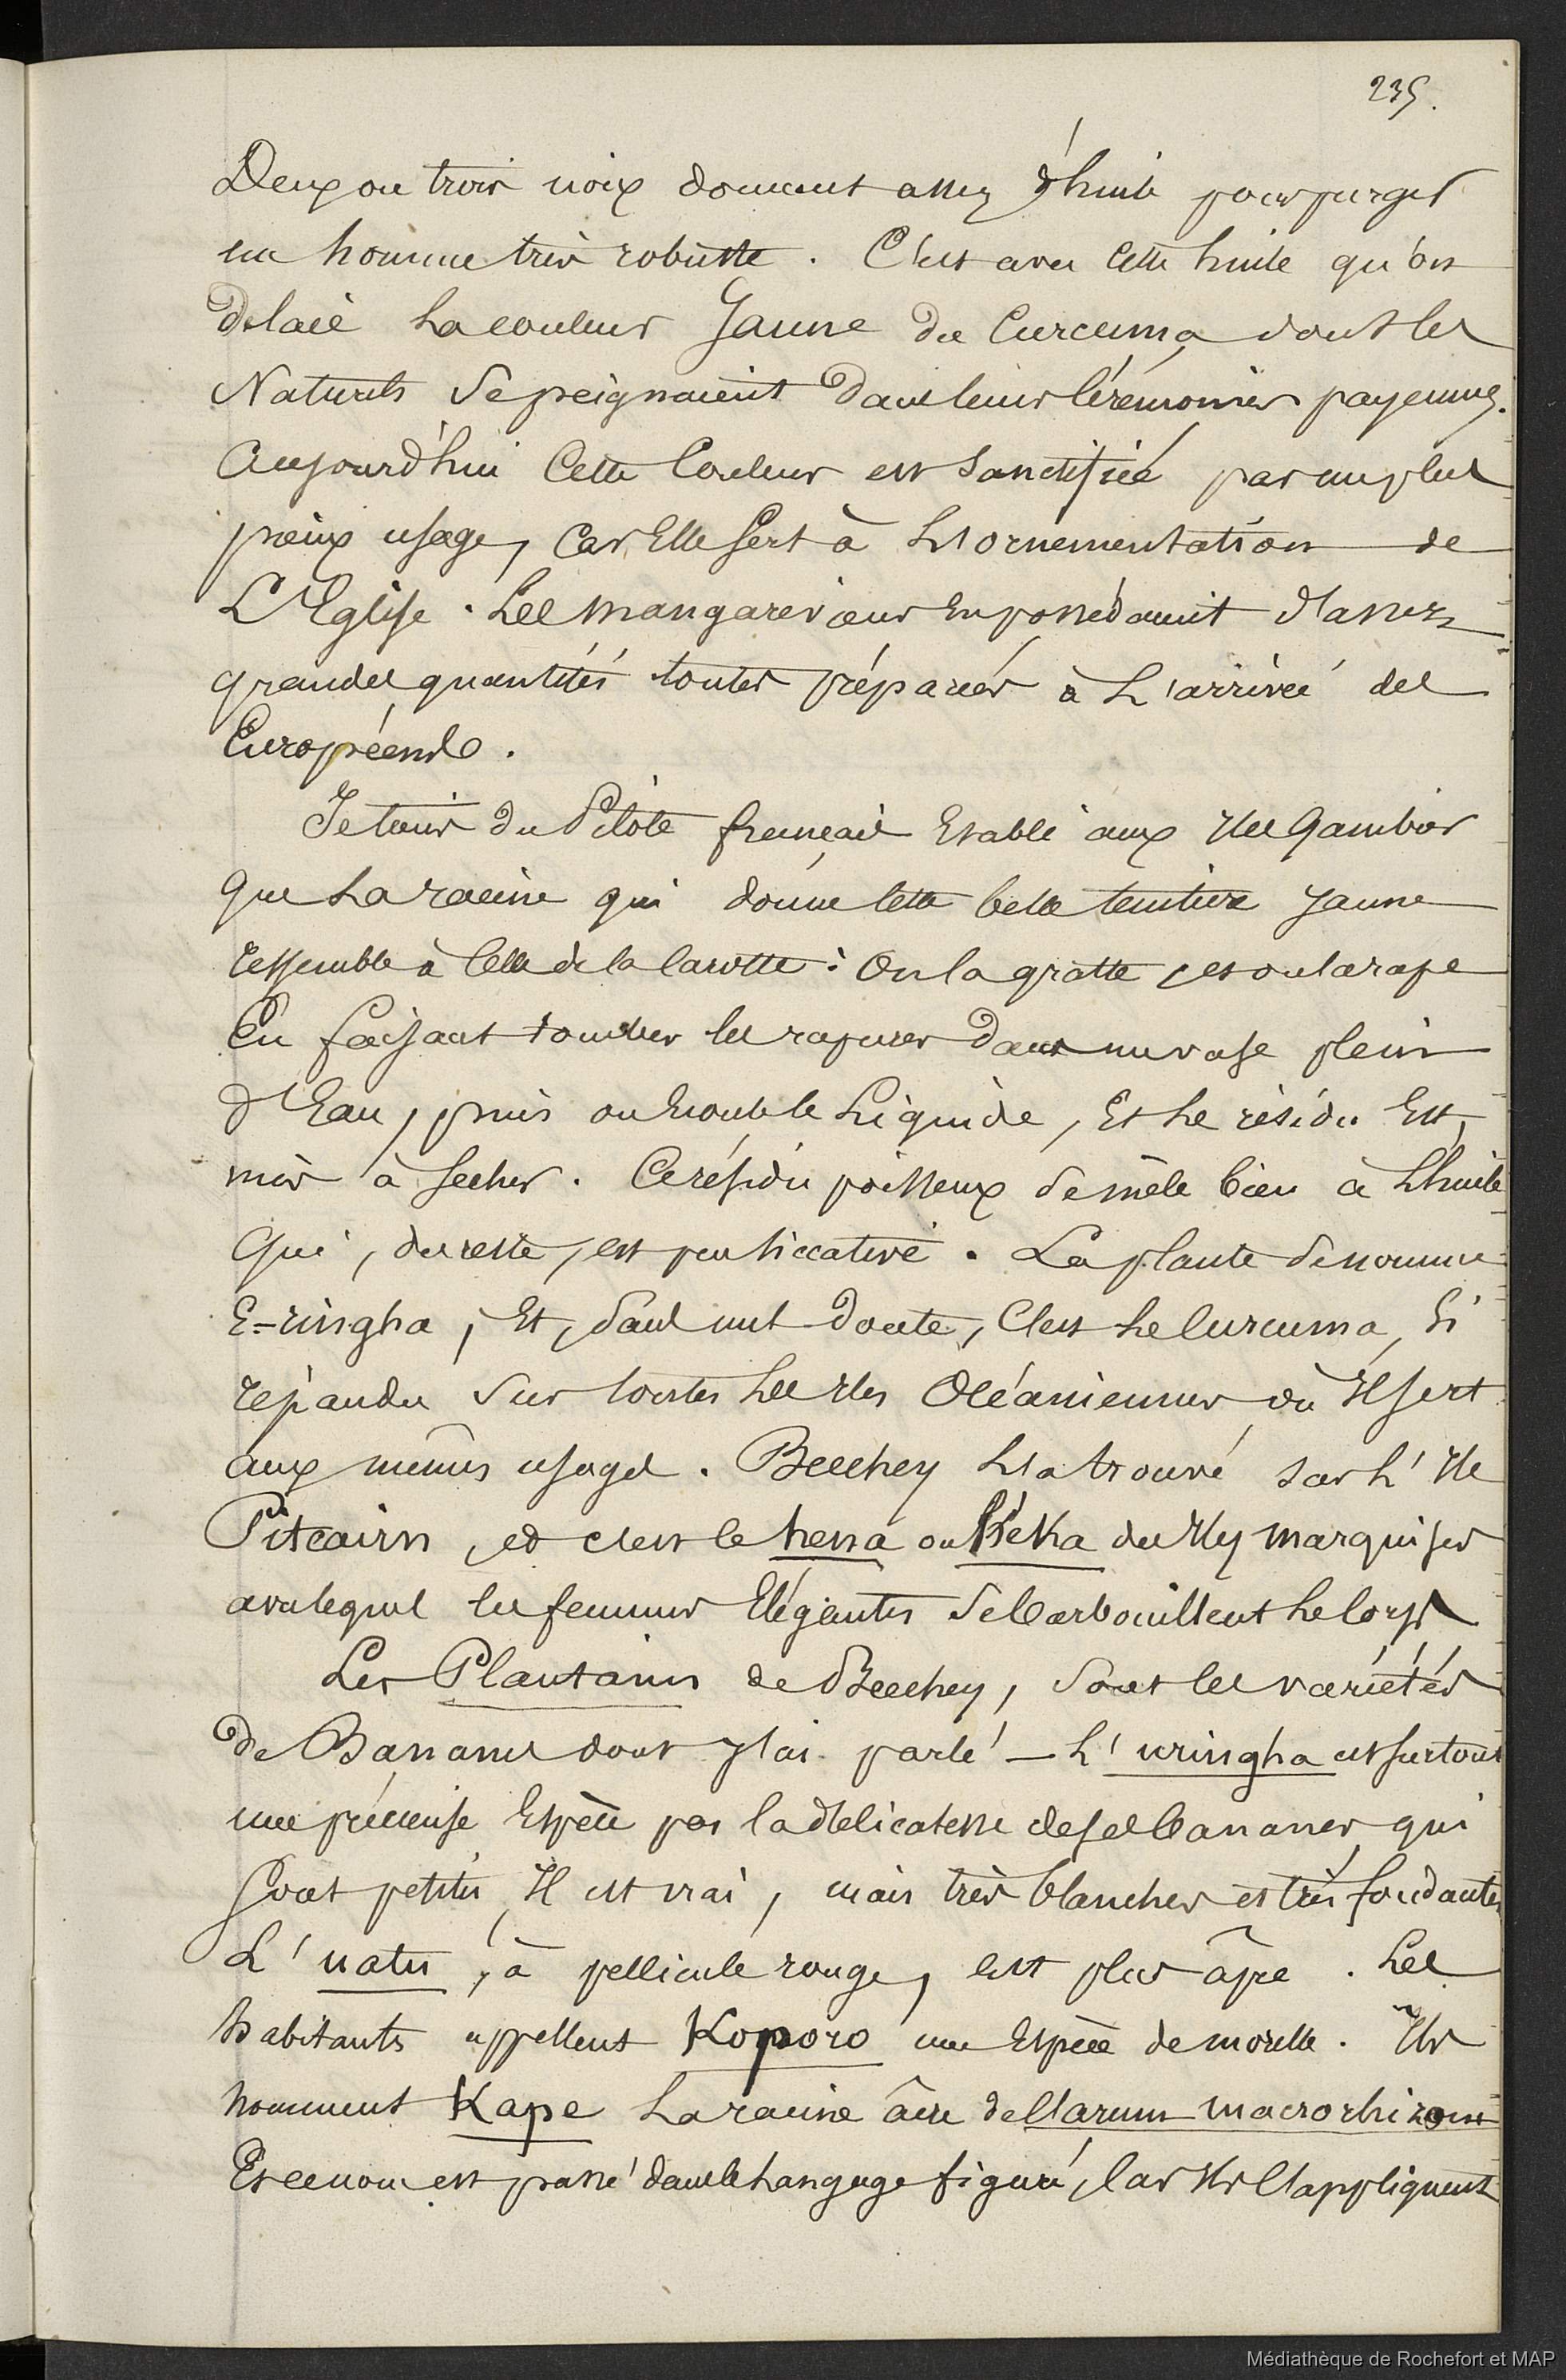 235.
Deux ou trois noix donnent assez d'huile pour purger
un homme très robuste. C'est avec cette huile qu'on
delaie la couleur Jaune du Curcuma dont les
Naturels se peignaient dans leurs Cérémonies payennes.
Aujourd'hui Cette Couleur est sanctifiée par un plus
pieux usage, Car Elle sert à L'ornementation de
L'Eglise. Les Mangareviens En possédaient d'assez
grandes quantités toutes préparées à L'arrivée des
Européens.
Je tiens du Pilote français Etabli aux Iles Gambier
que La racine qui donne cette belle teinture Jaune
ressemble à Celle de la Carotte : On la gratte, et on la rape
En faisant tomber les rapures dans un vase plein
d'Eau, puis on Ecoule le Liquide, Et Le résidu Est,
mis à secher. Ce résidu poisseux se mèle bien à L'huile
qui, du reste, est peu siccative. La plante se nomme
E=ringha, Et, sans nul doute, C'est Le Curcuma, si
répandu sur toutes Les Iles Océaniennes où Il sert
aux mêmes usages. Beechey L'a trouvé sur L'Ile
Pitcairn, et c'est le hena ou Keka des Iles Marquises
avec lequel les femmes Elégantes se barbouillent Le Corps
Les Plantains de Beechey, sont les variétés
de Bananes dont J'ai parlé — L'uringha est surtout
une précieuse Espèce par la délicatesse de ses bananes, qui
sont petites, Il est vrai, mais très blanches et très fondantes
L'uatu, à pellicule rouge, est plus âpre. Les
habitants appellent Koporo une Espèce de morelle. Ils
nomment Kape La racine âcre de l'arum macrorhizon
Et ce nom est passé dans le Langage figuré, Car Ils l'appliquent
Médiathèque de Rochefort et MAP